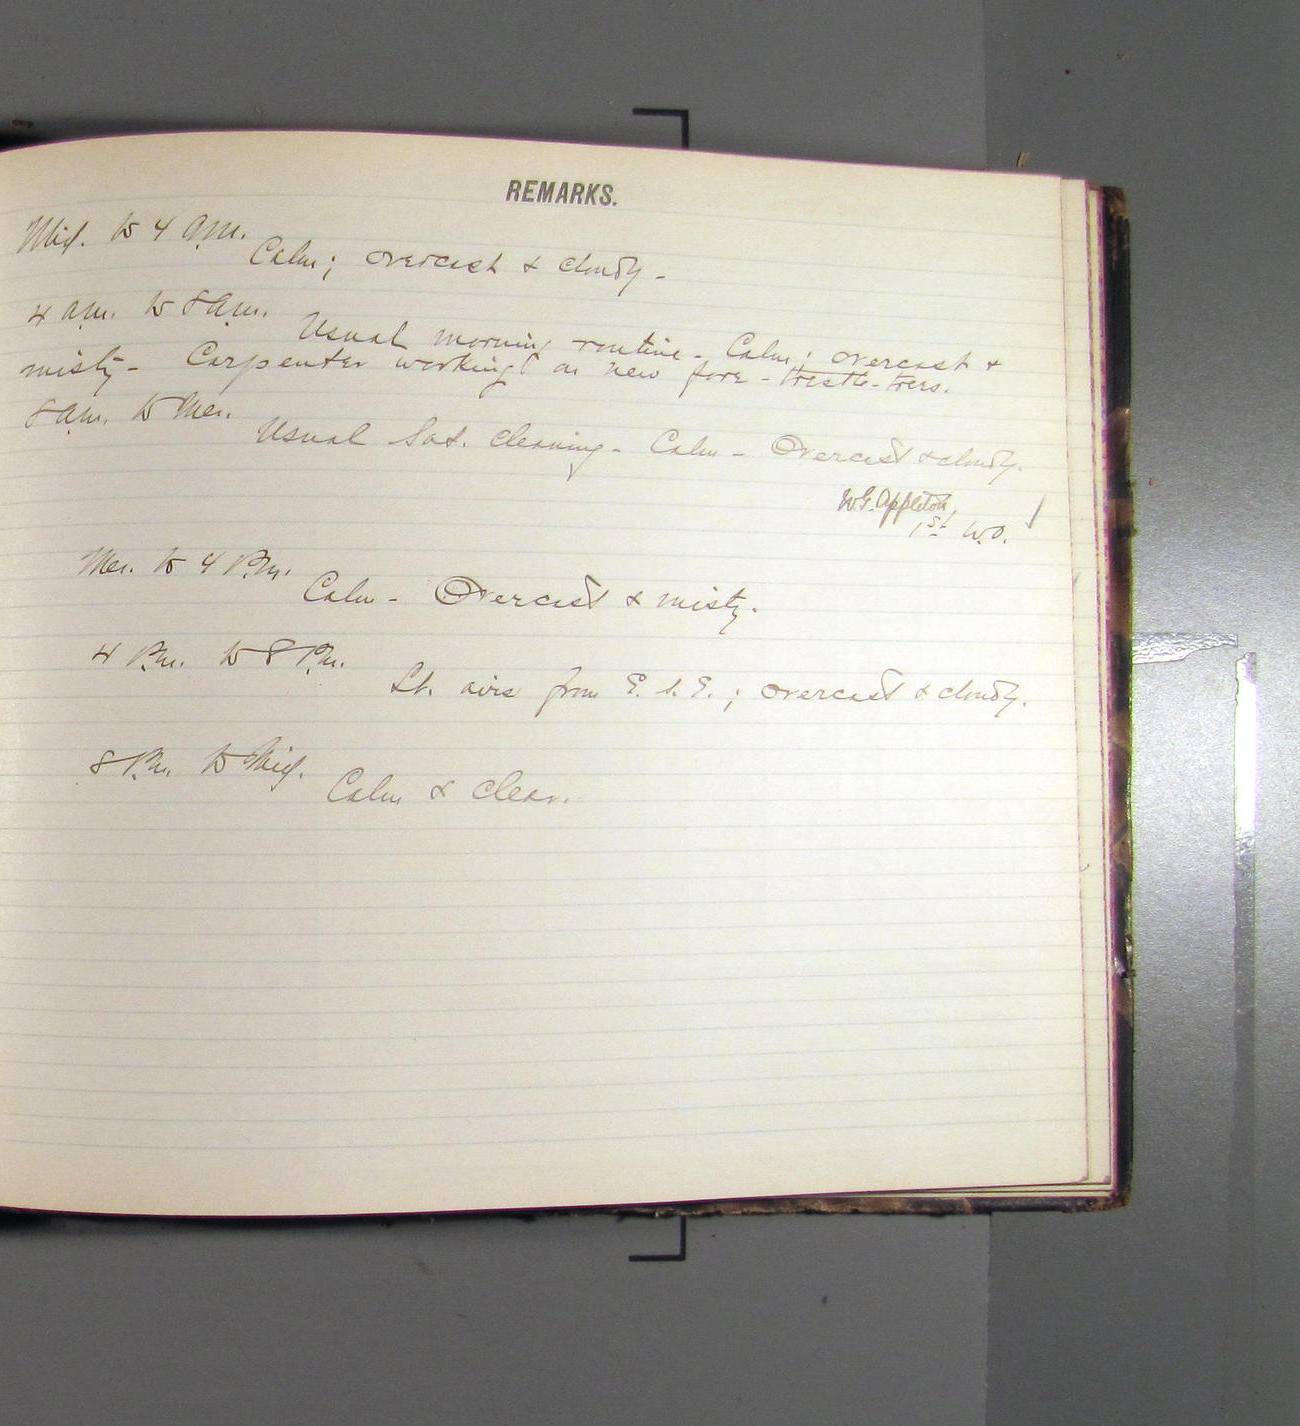 REMARKS.
Mid. to 4 a.m.
Calm; overcast & cloudy -
4 a.m. to 8 a.m.
Usual morning routine - Calm; overcast &
misty - Carpenter working on new fore - trestle-trees.
8 a.m. to Mer.
Usual Sat. cleaning - Calm - Overcast & cloudy.
W.G. Appleton,
1st W.O.
Mer. to 4 P.m.
Calm - Overcast & misty.
4 P.m. to 8 P.m.
Lt. airs from E. S. E.; overcast & cloudy.
8 P.m. to Mid.
Calm & clear.